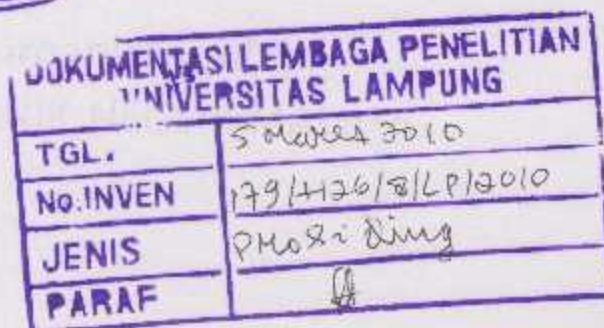 DOKUMENTASI LEMBAGA PENELITIAN
UNIVERSITAS LAMPUNG
TGL. 5 Maret 2010
No.INVEN 179/H26/8/LP/2010
JENIS Prosiding
PARAF